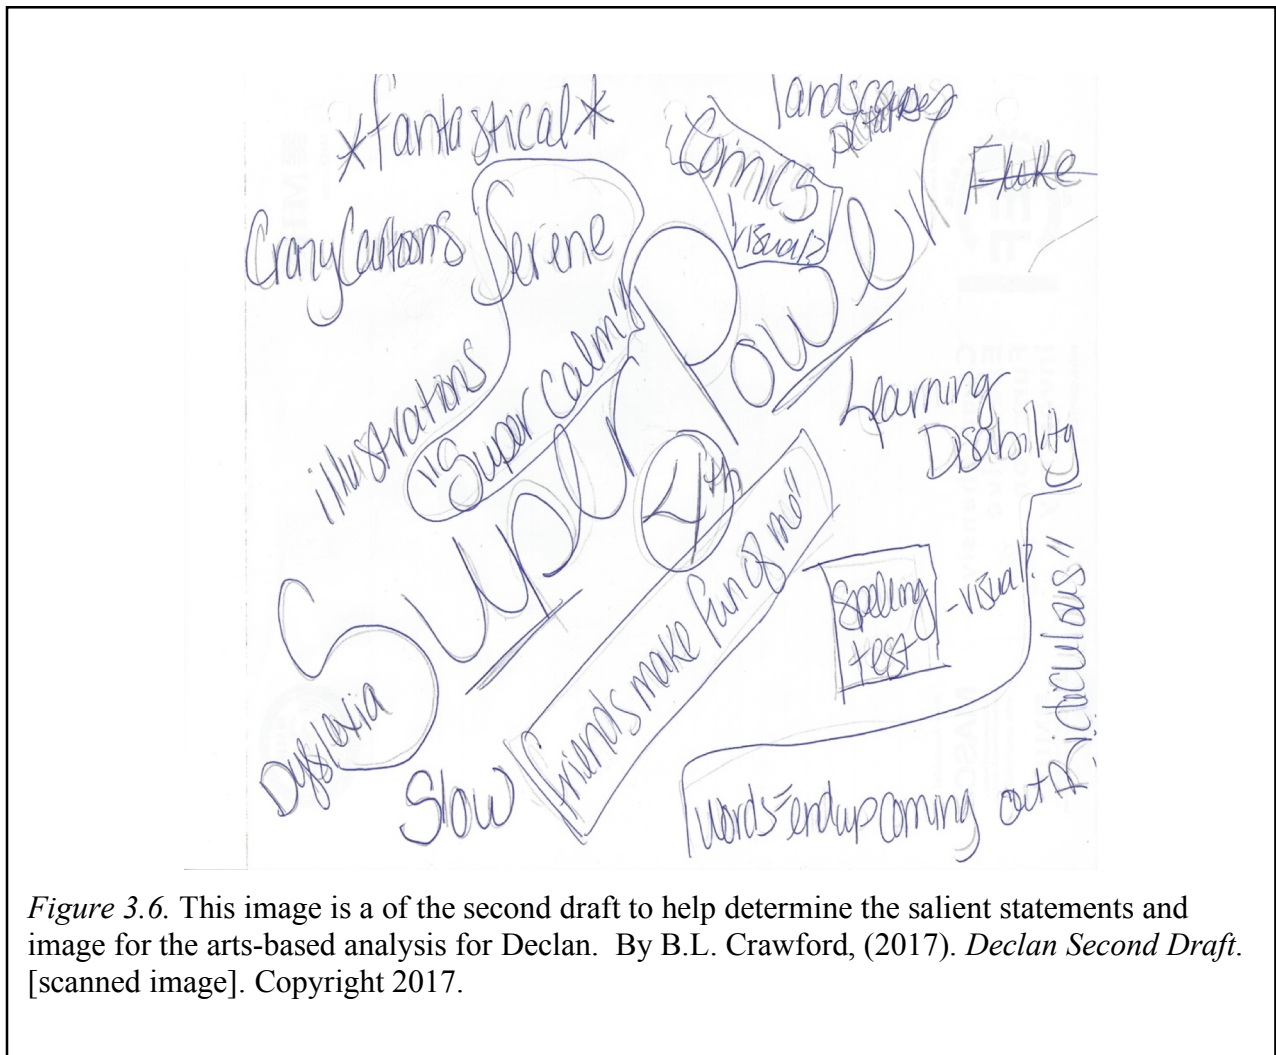 *fantastical*
landscapes
Comics
visual?
Fluke
Crazy Cartoons
Serene
illustrations
"Super calm"
Super Power
Learning
Disability
4th
"friends make fun of me"
Spelling
test
-visual?
Dyslexia
Slow
words=end up coming out "Ridiculous"
Figure 3.6. This image is a of the second draft to help determine the salient statements and
image for the arts-based analysis for Declan. By B.L. Crawford, (2017). Declan Second Draft.
[scanned image]. Copyright 2017.